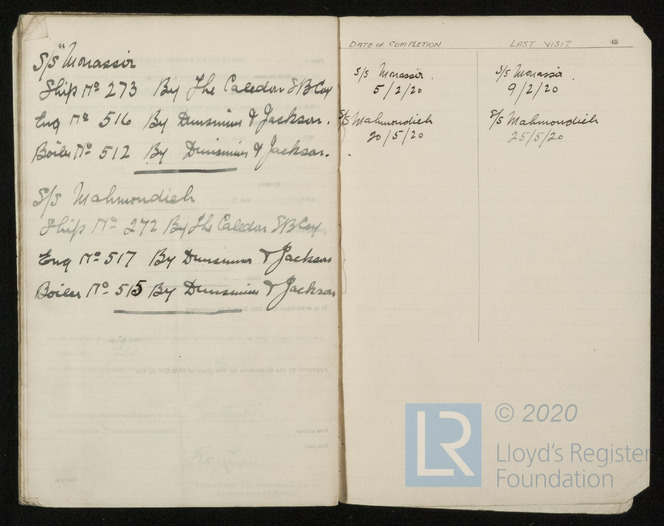 44
S/S Monassir
Ship No 273 By The Caledon S B Coy
Eng No 516 By Dunsmuir & Jackson.
Boiler No 512 By Dunsmuir & Jackson.
S/S Mahmoudieh
Ship No 272 By The Caledon S B Coy
Eng No 517 By Dunsmuir & Jackson
Boiler No 515 By Dunsmuir & Jackson
DATE OF COMPLETION
LAST VISIT
S/S Monassir.
5/2/20
S/S Monassir.
9/2/20
S/S Mahmoudieh
20/5/20
S/S Mahmoudieh
25/5/20
LR
© 2020
Lloyd's Register
Foundation